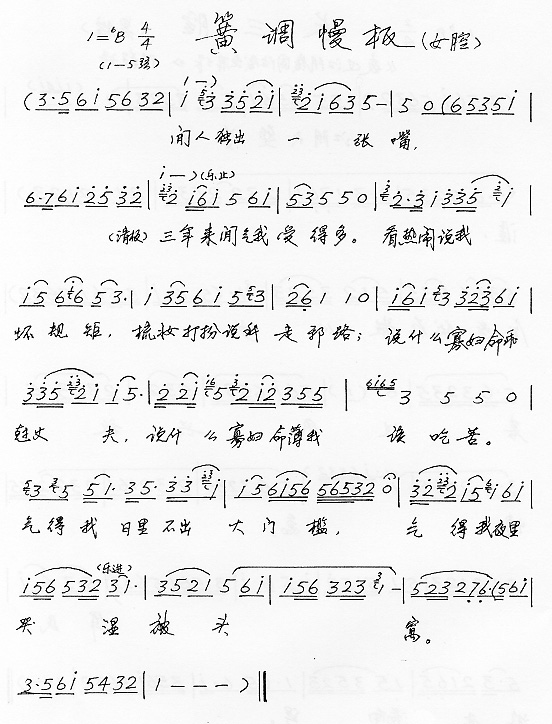 1=ᵇB 4/4 簧调慢板(女腔)
(1—5弦)
(3·5 6i 56 32 | i 3 3521 | 2i635- | 5 0 (6535i |
闲人独出 一 张 嘴,
i—)(乐止)
6·76i 2532 | 2 i6i 5 6i | 53 5 5 0 | 2·3i335 i |
(清板) 三年来闲气我受 得多。 看热闹说我
i5 6i6 53· | i 356 i 5 3 | 26 1 1 0 | i6i 3 3236i |
坏规矩, 梳妆打扮说我走邪路; 说什么寡妇命
335 2i i5· | 22i 5 2i2 355 | 6i65 3 5 5 0 |
夫,说什么寡妇命薄我 该吃苦。
3 5 5i· 35· 33 i | i56i56 56532 0 | 3222i5 6i |
气得我日里不出 大门槛, 气得我夜里
(乐进)
i56 532 31· | 3521 5 6i | i56 323 i- | 52376·(56i |
哭湿被头 窝。
3·56i 5432 | 1 - - - ) ‖